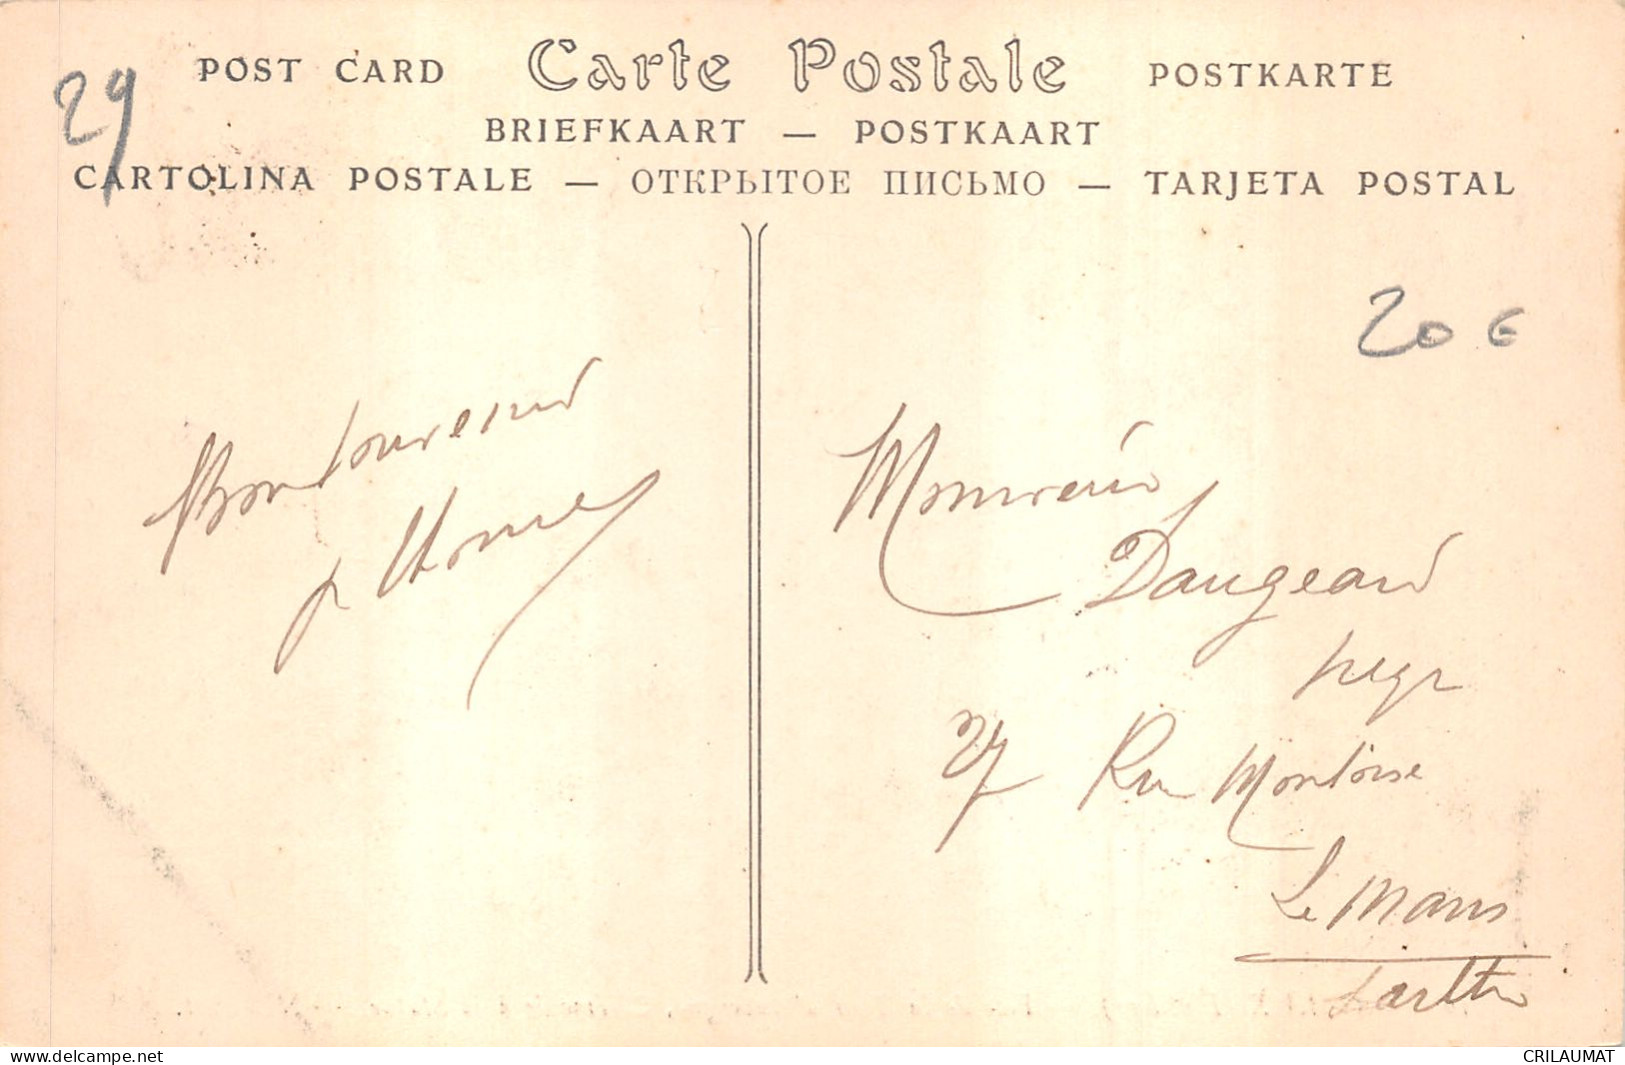 29
POST CARD Carte Postale POSTKARTE
BRIEFKAART — POSTKAART
CARTOLINA POSTALE — ОТКРЫТОЕ ПИСЬМО — TARJETA POSTAL
20 €
Bon souvenir
Monsieur
Daugeard
27 Rue Montoise
Le Mans
Sarthe
delcampe.net
CRILAUMAT